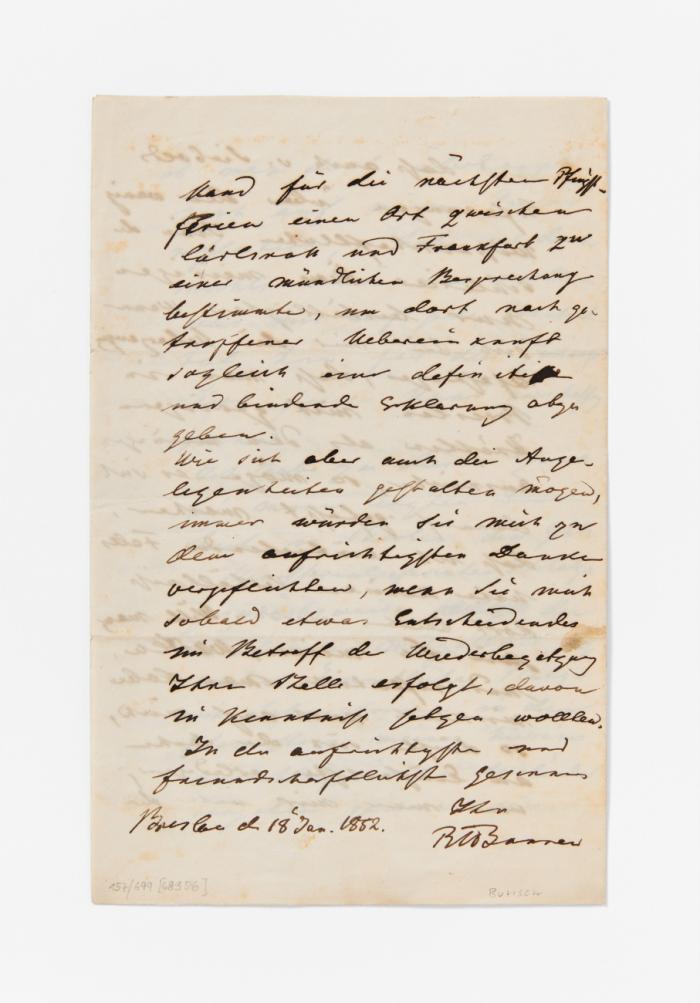 Hand für die nächsten Pfingst-
ferien einen Ort zwischen
Carlsruh und Frankfurt zu
einer mündlichen Besprechung
bestimmte, um dort nach ge-
troffener Uebereinkunft
sogleich eine definitive
und bindende Erklärung abzu
geben.
Wie sich aber auch die Ange-
legenheiten gestalten mögen,
immer würden Sie mich zu
dem aufrichtigsten Danke
verpflichten, wenn Sie mich
sobald etwas Entscheidendes
im Betreff der Wiederbesetzung
Ihrer Stelle erfolgt, davon
in Kenntniß setzen wollten.
In der aufrichtigsten und
freundschaftlichst
Ihr
Breslau d. 18 Jan. 1852.
RWBunsen
157/699 [68356]